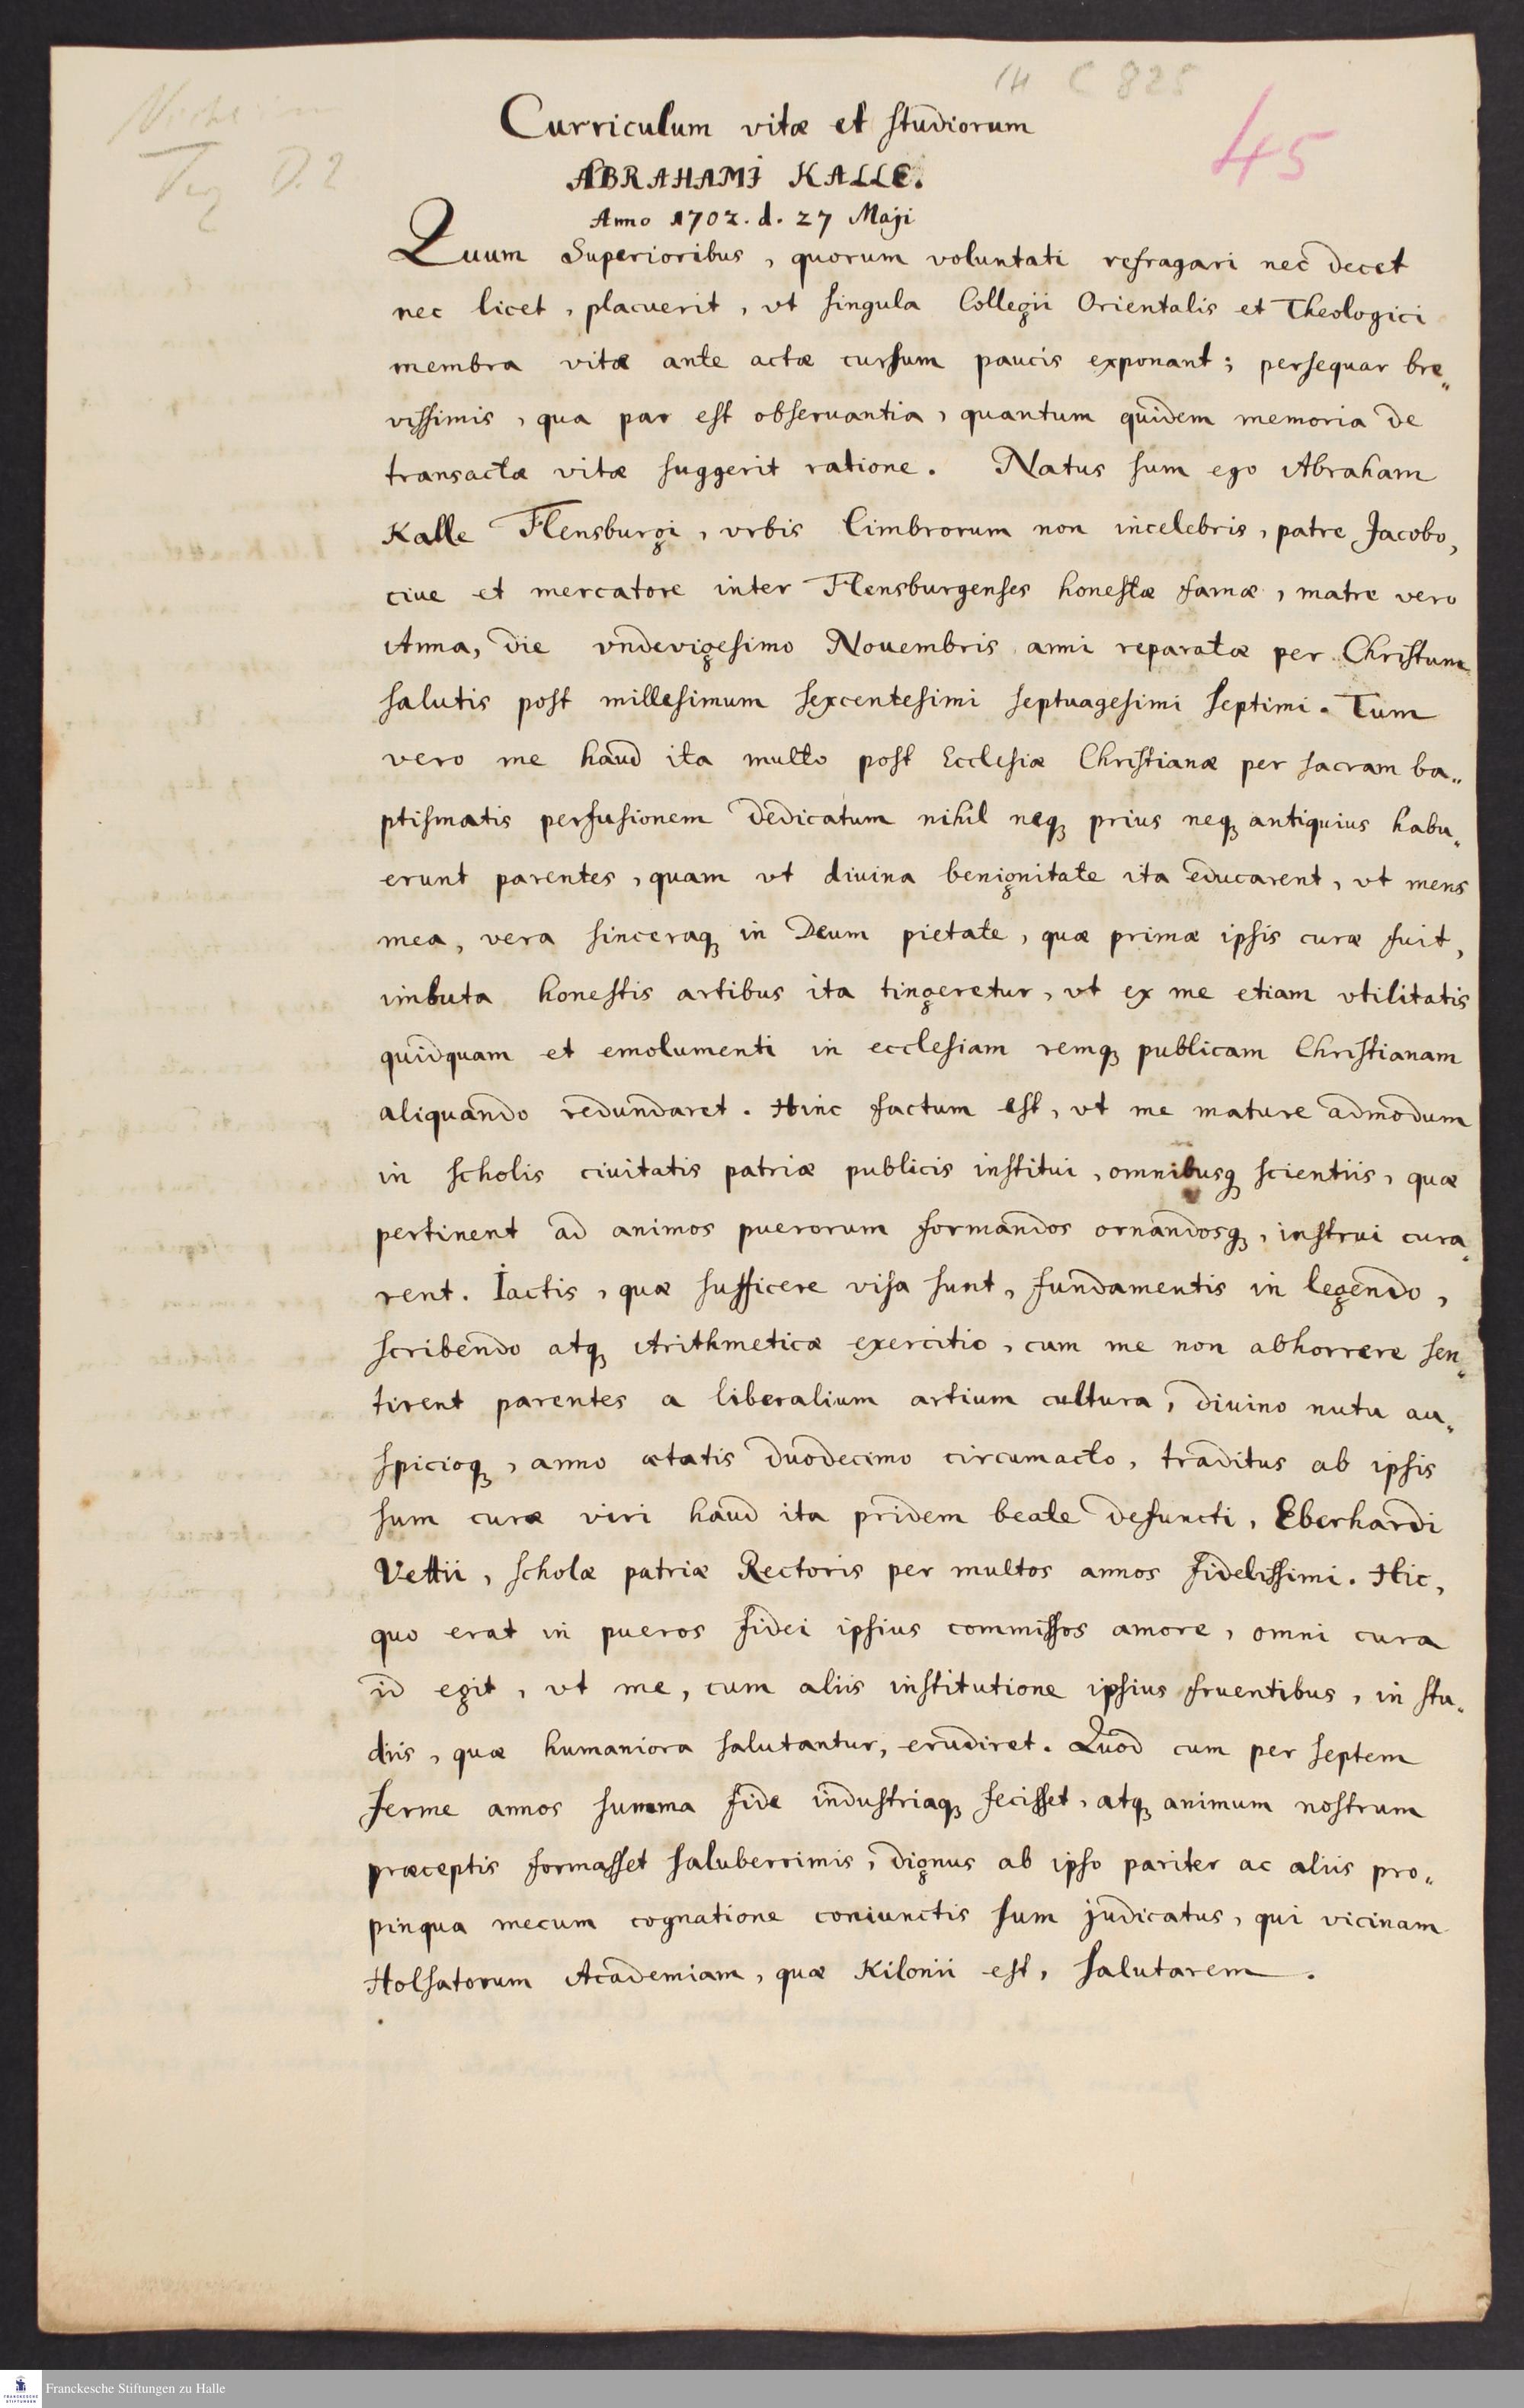 H C 825
45
Curriculum vitæ et studiorum
ABRAHAMI KALLE.
Anno 1702. d. 27 Maji
Quum Superioribus, quorum voluntati refragari nec decet
nec licet, placuerit, vt singula Collegii Orientalis et Theologici
membra vitæ ante actæ cursum paucis exponant; persequar bre„
vissimis, qua par est obseruantia, quantum quidem memoria de
transactæ vitæ suggerit ratione. Natus sum ego Abraham
Kalle Flensburgi, vrbis Cimbrorum non incelebris, patre Jacobo,
ciue et mercatore inter Flensburgenses honestæ famæ, matre vero
Anna, die vndevigesimo Nouembris anni reparatæ per Christum
salutis post millesimum sexcentesimi septuagesimi septimi. Tum
vero me haud ita multo post Ecclesiæ Christianæ per sacram ba„
ptismatis perfusionem dedicatum nihil neq; prius neq; antiquius habu„
erunt parentes, quam vt diuina benignitate ita educarent, vt mens
mea, vera sinceraq; in Deum pietate, quæ primæ ipsis curæ fuit,
imbuta honestis artibus ita tingeretur, vt ex me etiam vtilitatis
quidquam et emolumenti in ecclesiam remq; publicam Christianam
aliquando redundaret. Hinc factum est, vt me mature admodum
in scholis ciuitatis patriæ publicis institui, omnibusq; scientiis, quæ
pertinent ad animos puerorum formandos ornandosq;, instrui cura„
rent. Iactis, quæ sufficere visa sunt, fundamentis in legendo,
scribendo atq; Arithmeticæ exercitio, cum me non abhorrere sen„
tirent parentes a liberalium artium cultura, diuino nutu au„
spicioq;, anno ætatis duodecimo circumacto, traditus ab ipsis
sum curæ viri haud ita pridem beate defuncti, Eberhardi
Vettii, scholæ patriæ Rectoris per multos annos fidelissimi. Hic,
quo erat in pueros fidei ipsius commissos amore, omni cura
id egit, vt me, cum aliis institutione ipsius fruentibus, in stu„
diis, quæ humaniora salutantur, erudiret. Quod cum per septem
ferme annos summa fide industriaq; fecisset, atq; animum nostrum
præceptis formasset saluberrimis, dignus ab ipso pariter ac aliis pro„
pinqua mecum cognatione coniunctis sum judicatus, qui vicinam
Holsatorum Academiam, quæ Kilonii est, salutarem.
Franckesche Stiftungen zu Halle